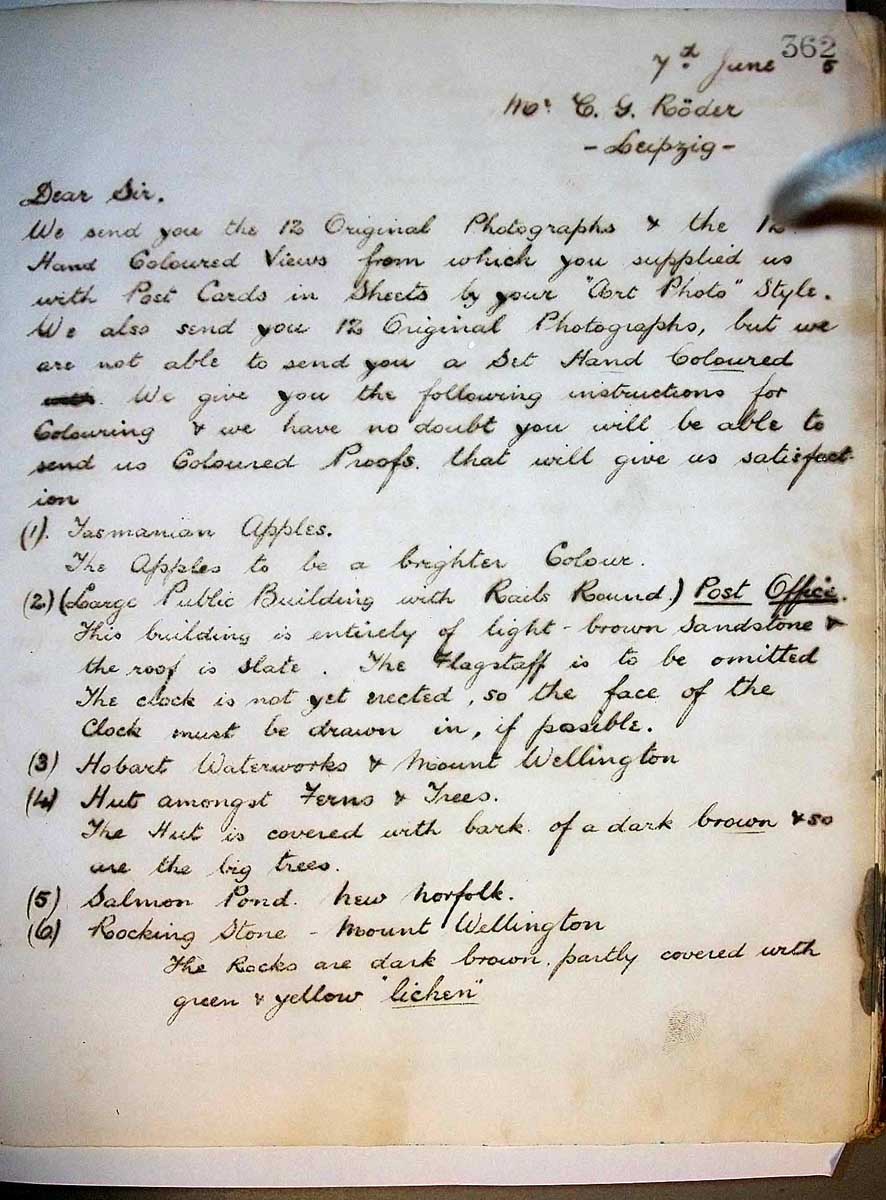 362
7th June 5
Mr. C. G. Röder
- Leipzig -
Dear Sir.
We send you the 12 Original Photographs & the 12
Hand Coloured Views from which you supplied us
with Post Cards in Sheets by your "Art Photo" Style.
We also send you 12 Original Photographs, but we
are not able to send you a Set Hand Coloured
. We give you the following instructions for
Colouring & we have no doubt you will be able to
send us Coloured Proofs. that will give us satisfact-
ion
(1). Tasmanian Apples.
The Apples to be a brighter Colour.
(2) (Large Public Building with Rails Round.) Post Office.
This building is entirely of light-brown Sandstone &
the roof is Slate. The Flagstaff is to be omitted
The clock is not yet erected, so the face of the
Clock must be drawn in, if possible.
(3) Hobart Waterworks & Mount Wellington
(4) Hut amongst Ferns & Trees.
The Hut is covered with bark of a dark brown & so
are the big trees.
(5) Salmon Pond. New Norfolk.
(6) Rocking Stone - Mount Wellington
The Rocks are dark brown. partly covered with
green & yellow "lichen"